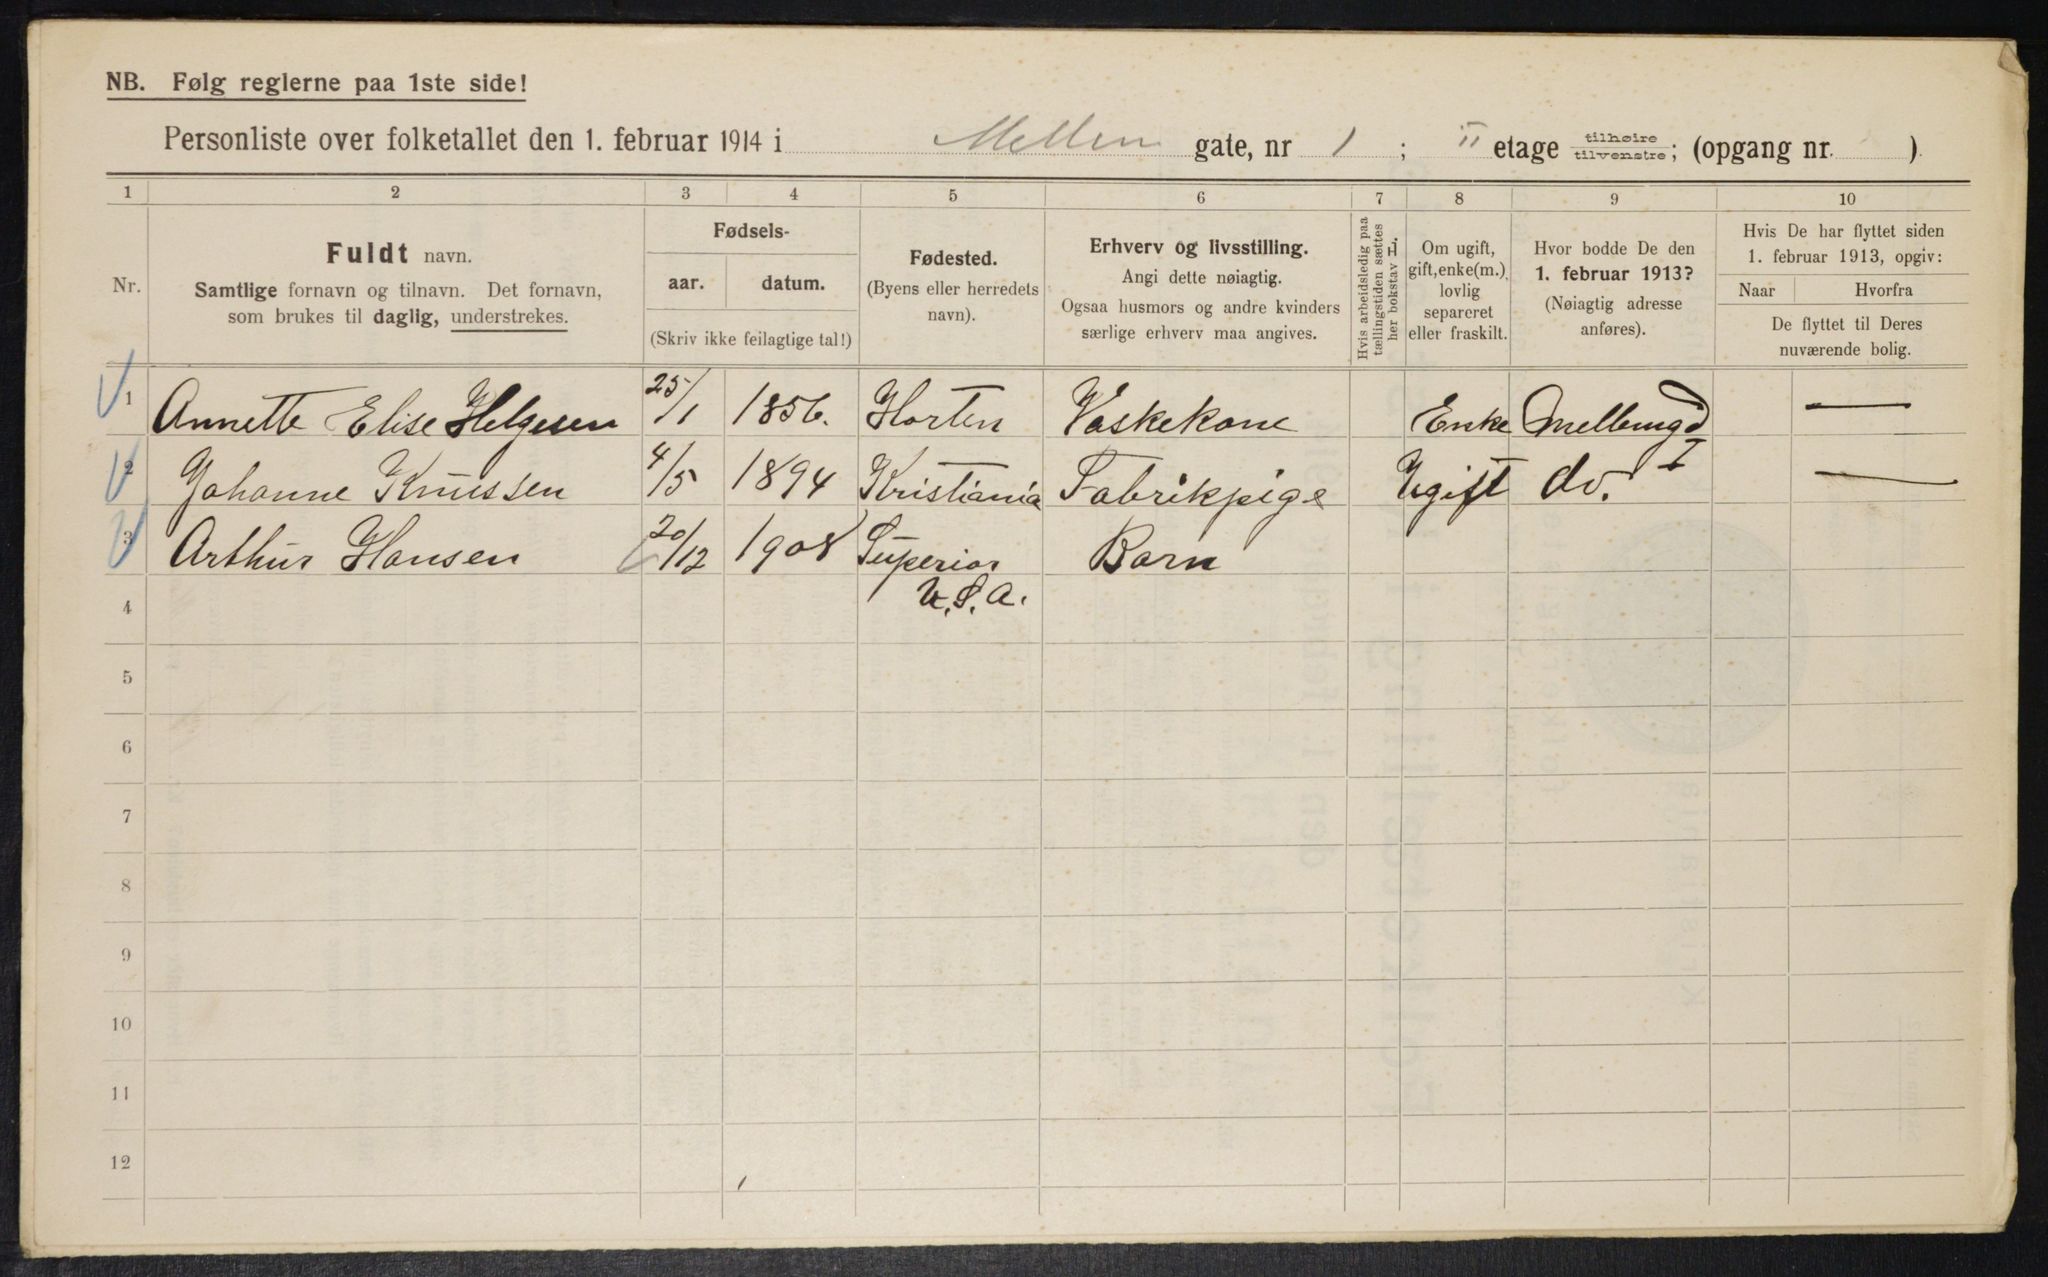 NB. Følg reglerne paa 1ste side!
Personliste over folketallet den 1. februar 1914 i Mellem gate, nr 1 ; II etage tilhøire tilvenstre; (opgang nr. ).
1 2 3 4 5 6 7 8 9 10
Nr.
Fuldt navn.
Samtlige fornavn og tilnavn. Det fornavn,
som brukes til daglig, understrekes.
Fødsels-
aar. datum.
(Skriv ikke feilagtige tal!)
Fødested.
(Byens eller herredets
navn).
Erhverv og livsstilling.
Angi dette nøiagtig.
Ogsaa husmors og andre kvinders
særlige erhverv maa angives.
Hvis arbeidsledig paa
tællingstiden sættes
her bokstav H.
Om ugift,
gift, enke(m.),
lovlig
separeret
eller fraskilt.
Hvor bodde De den
1. februar 1913?
(Nøiagtig adresse
anføres).
Hvis De har flyttet siden
1. februar 1913, opgiv:
Naar Hvorfra
De flyttet til Deres
nuværende bolig.
1 Annette Elise Helgesen 25/1 1856. Horten Vaskekone Enke —
2 Johanne Knussen 4/5 1894 Kristiania Fabrikpige Ugift do. I —
3 Arthur Hansen 20/12 1908 Superior Barn
4 U.S.A.
5
6
7
8
9
10
11
12